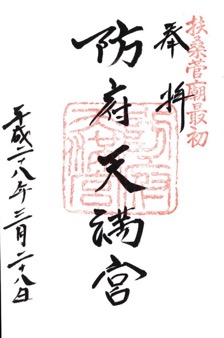 扶桑菅廟最初
奉拝
防府天満宮
平成二十八年三月二十八日